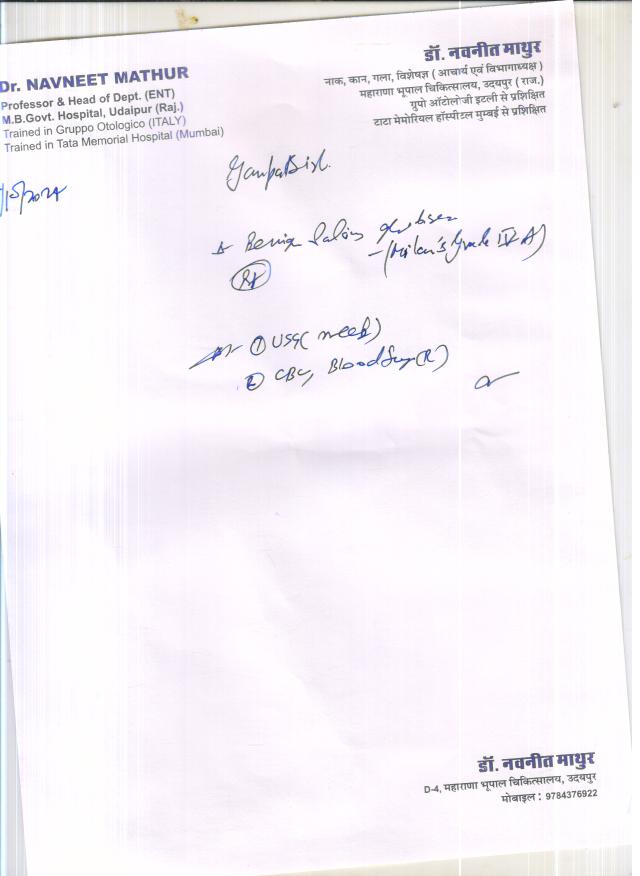 Dr. NAVNEET MATHUR
Professor & Head of Dept. (ENT)
M.B.Govt. Hospital, Udaipur (Raj.)
Trained in Gruppo Otologico (ITALY)
Trained in Tata Memorial Hospital (Mumbai)
डॉ. नवनीत माथुर
नाक, कान, गला, विशेषज्ञ ( आचार्य एवं विभागाध्यक्ष )
महाराणा भूपाल चिकित्सालय, उदयपुर ( राज.)
ग्रुपो ऑटोलोजी इटली से प्रशिक्षित
टाटा मेमोरियल हॉस्पीटल मुम्बई से प्रशिक्षित
/2024
Benign
(Milan's Grade IV A)
① USG( neck)
② CBC, Blood Sugar(R)
डॉ. नवनीत माथुर
D-4, महाराणा भूपाल चिकित्सालय, उदयपुर
मोबाइल : 9784376922